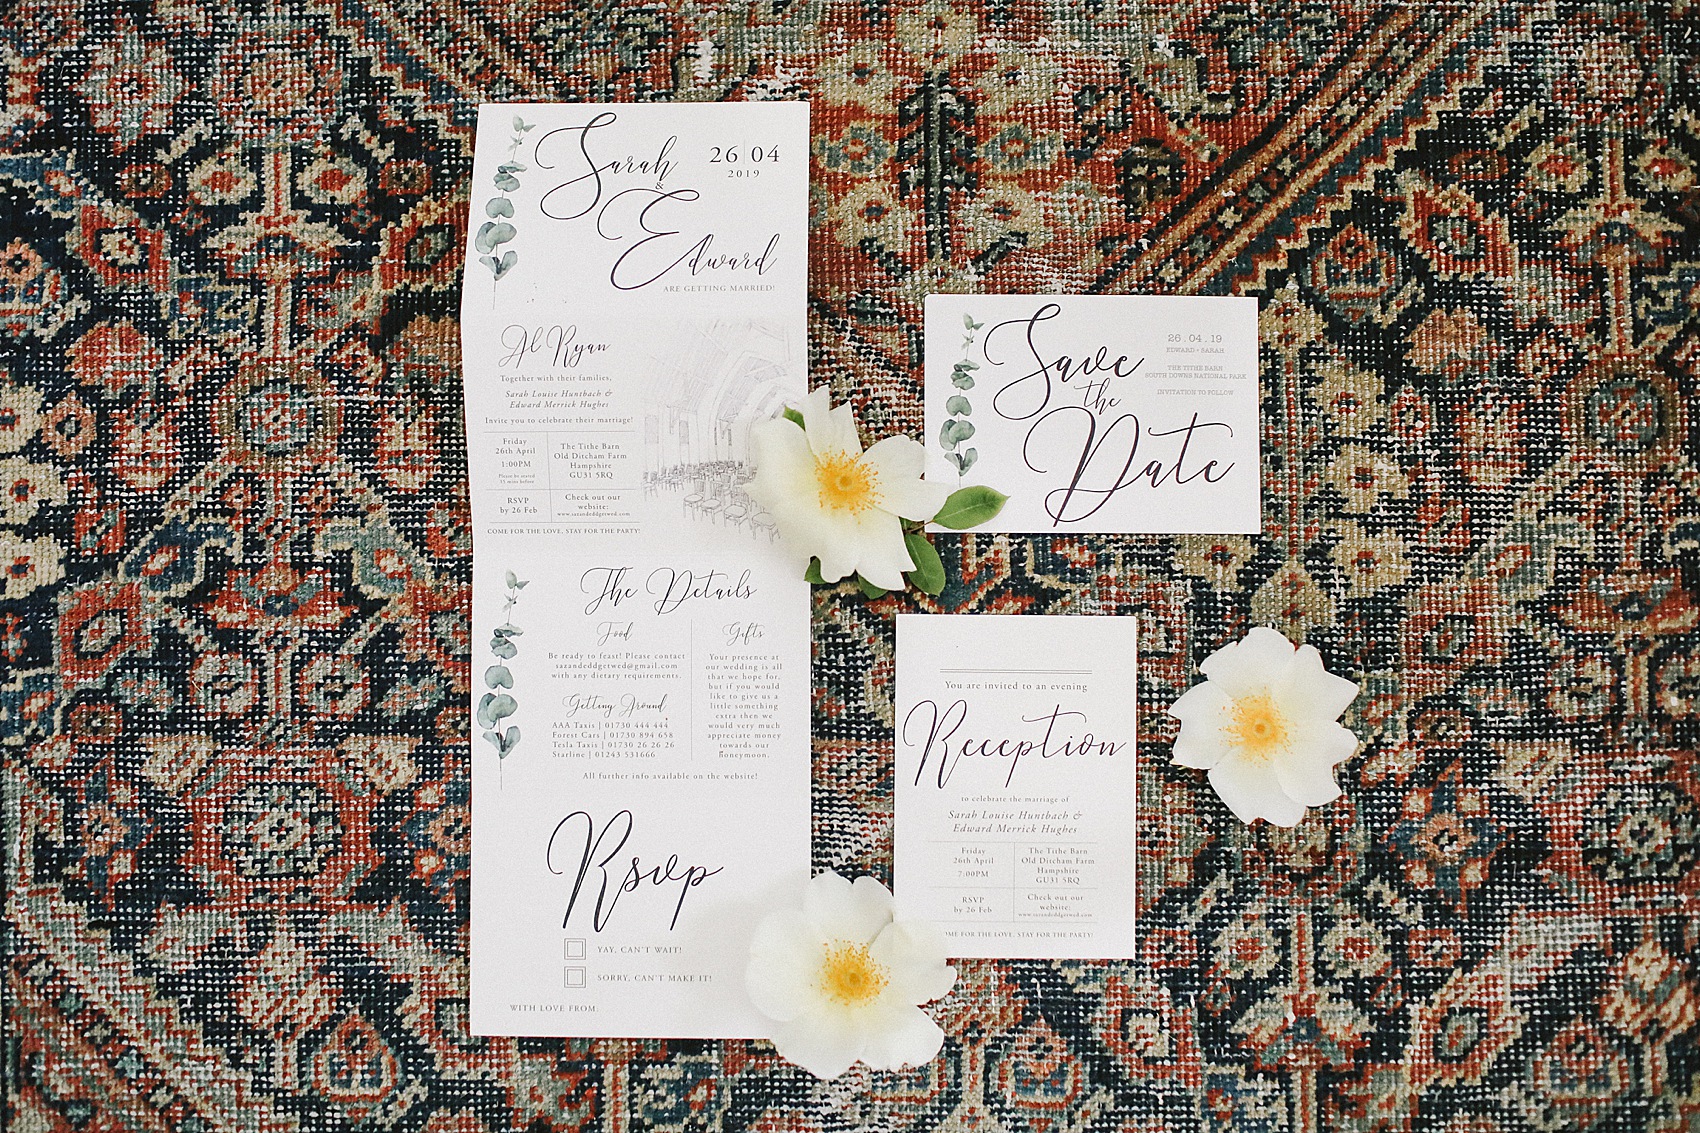 Sarah
&
Edward
26 | 04
2019
ARE GETTING MARRIED!
Al Ryan
Together with their families,
Sarah Louise Huntbach &
Edward Merrick Hughes
Invite you to celebrate their marriage!
Friday
26th April
1:00PM
Please be seated
15 mins before
The Tithe Barn
Old Ditcham Farm
Hampshire
GU31 5RQ
RSVP
by 26 Feb
Check out our
website:
www.sazandeddgetwed.com
COME FOR THE LOVE, STAY FOR THE PARTY!
The Details
Food
Be ready to feast! Please contact
sazandeddgetwed@gmail.com
with any dietary requirements.
Getting Around
AAA Taxis | 01730 444 444
Forest Cars | 01730 894 658
Tesla Taxis | 01730 26 26 26
Starline | 01243 531666
Gifts
Your presence at
our wedding is all
that we hope for,
but if you would
like to give us a
little something
extra then we
would very much
appreciate money
towards our
honeymoon.
All further info available on the website!
Rsvp
YAY, CAN'T WAIT!
SORRY, CAN'T MAKE IT!
WITH LOVE FROM:
Save
the
Date
26.04.19
EDWARD + SARAH
THE TITHE BARN
SOUTH DOWNS NATIONAL PARK
INVITATION TO FOLLOW
You are invited to an evening
Reception
to celebrate the marriage of
Sarah Louise Huntbach &
Edward Merrick Hughes
Friday
26th April
7:00PM
The Tithe Barn
Old Ditcham Farm
Hampshire
GU31 5RQ
RSVP
by 26 Feb
Check out our
website:
www.sazandeddgetwed.com
OME FOR THE LOVE, STAY FOR THE PARTY!